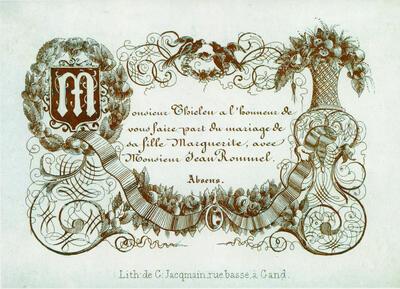 Monsieur Thielen a l'honneur de
vous faire part du mariage de
sa fille Marguerite, avec
Monsieur Jean Rommel.
Absens.
Lith: de G. Jacqmain, rue basse, à Gand.